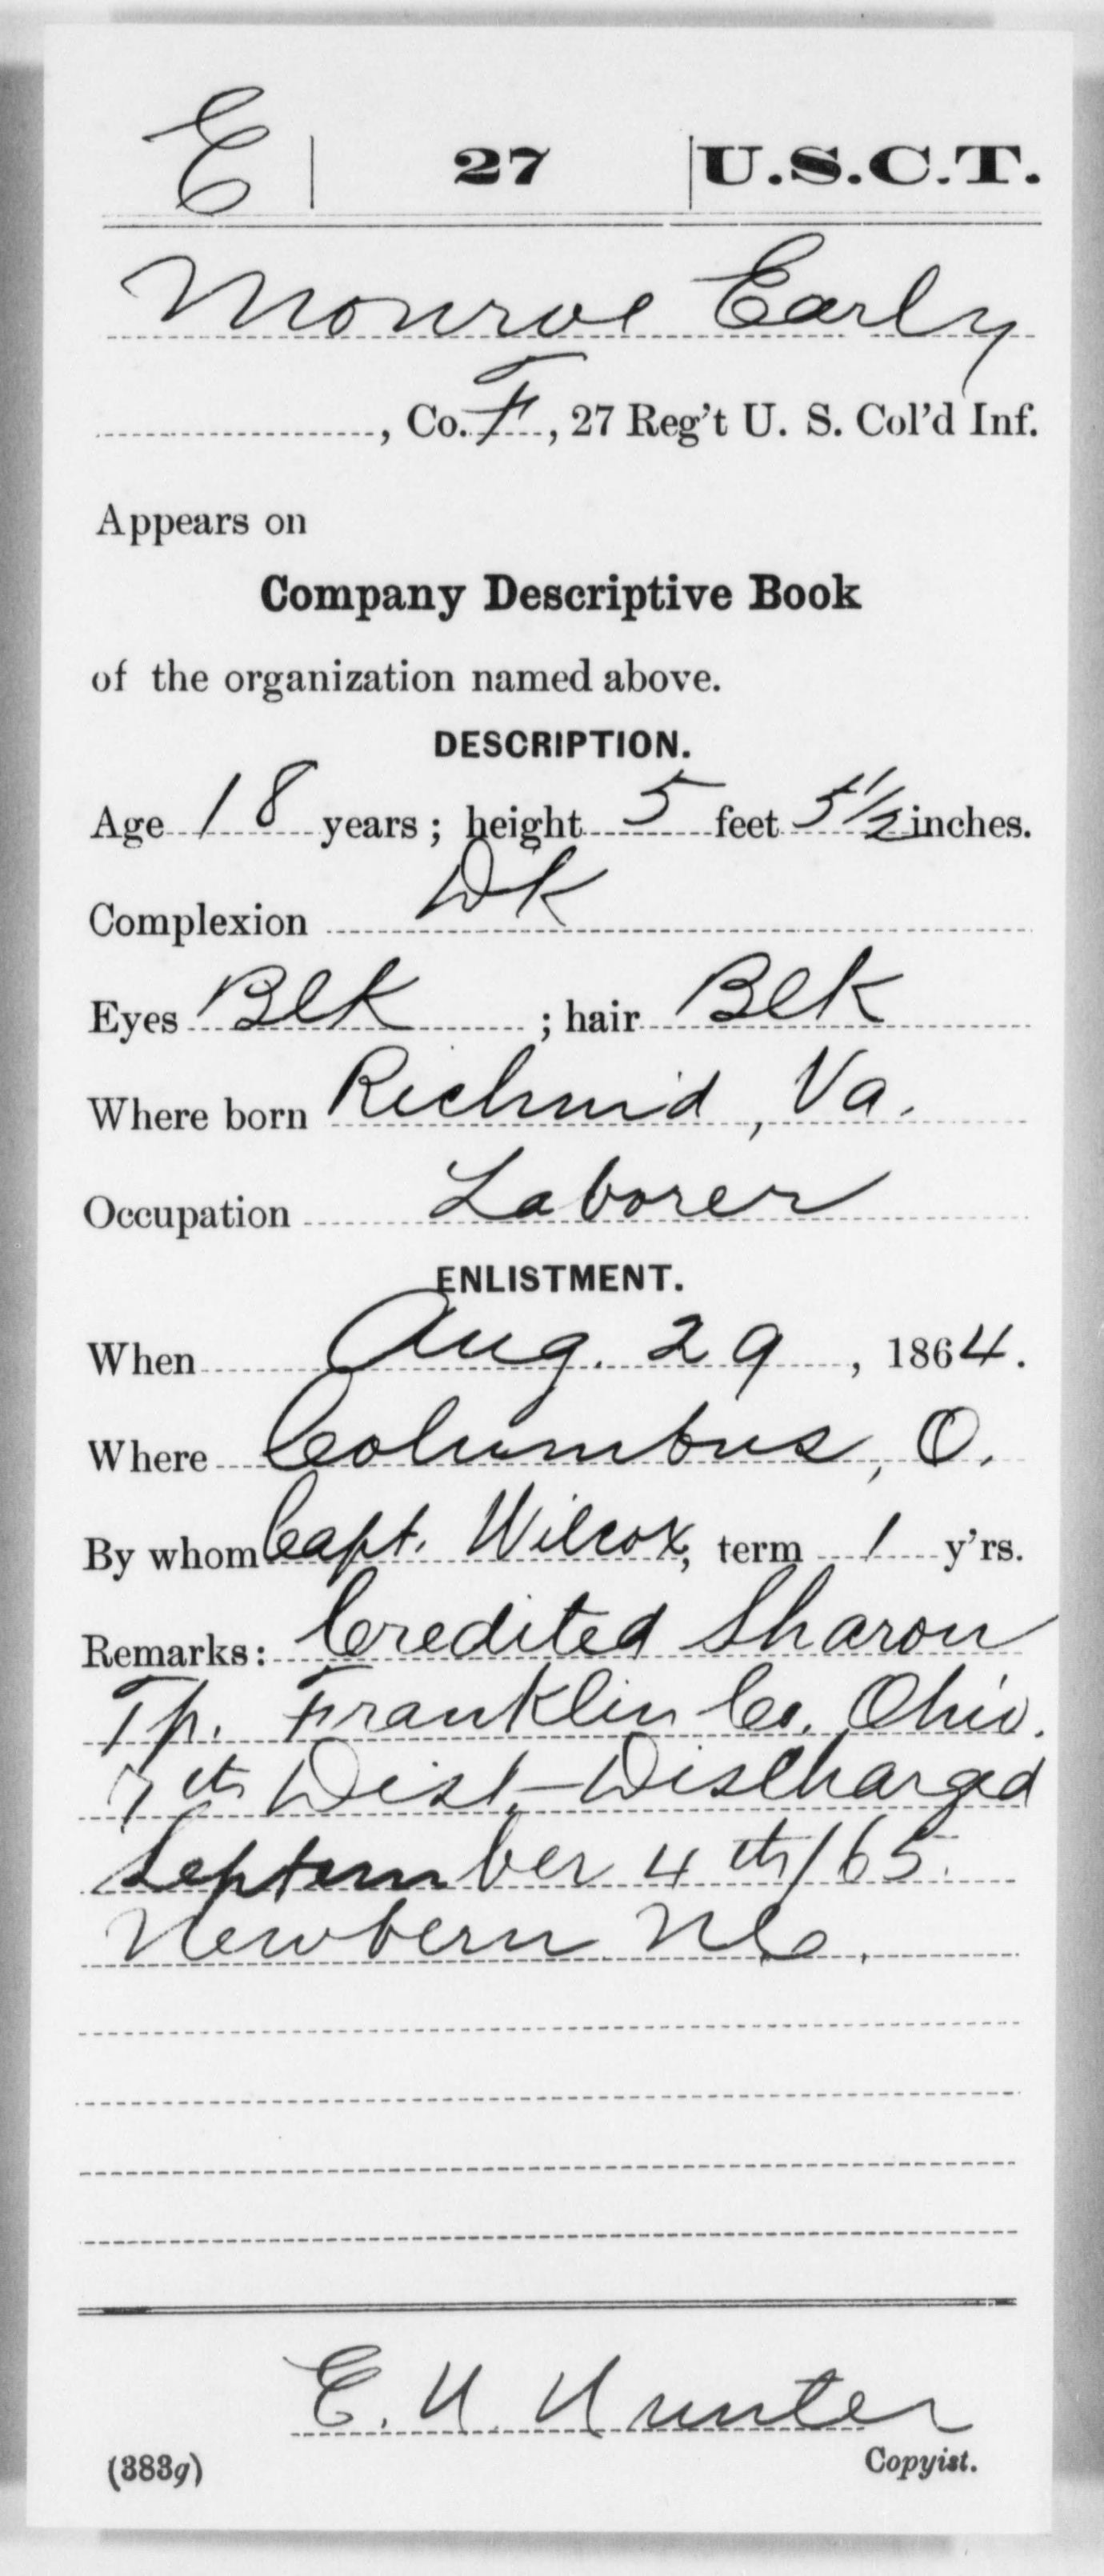 E | 27 | U.S.C.T.
Monroe Early
, Co. F, 27 Reg't U. S. Col'd Inf.
Appears on
Company Descriptive Book
of the organization named above.
DESCRIPTION.
Age 18 years; height 5 feet 5 1/2 inches.
Complexion Dk
Eyes Blk ; hair Blk
Where born Richm'd, Va.
Occupation Laborer
ENLISTMENT.
When Aug. 29, 1864.
Where Columbus, O.
By whom Capt. Wilcox, term 1 y'rs.
Remarks: Credited Sharon
Tp. Franklin Co. Ohio.
7th Dist. – Discharged
September 4th/65.
Newbern NC.
E. H. Hunter
(383g) Copyist.